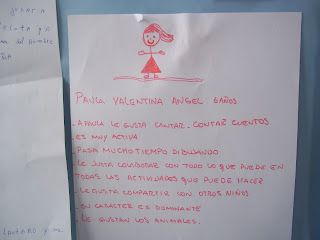 PAULA VALENTINA ANGEL 6AÑOS
. A PAULA LE GUSTA CANTAR. CONTAR CUENTOS
. ES MUY ACTIVA
. PASA MUCHO TIEMPO DIBUJANDO
. LE GUSTA COLABORAR CON TODO LO QUE PUEDE EN
TODAS LAS ACTIVIDADES QUE PUEDE HACER
. LE GUSTA COMPARTIR CON OTROS NIÑOS
. SU CARACTER ES DOMINANTE
. LE GUSTAN LOS ANIMALES.